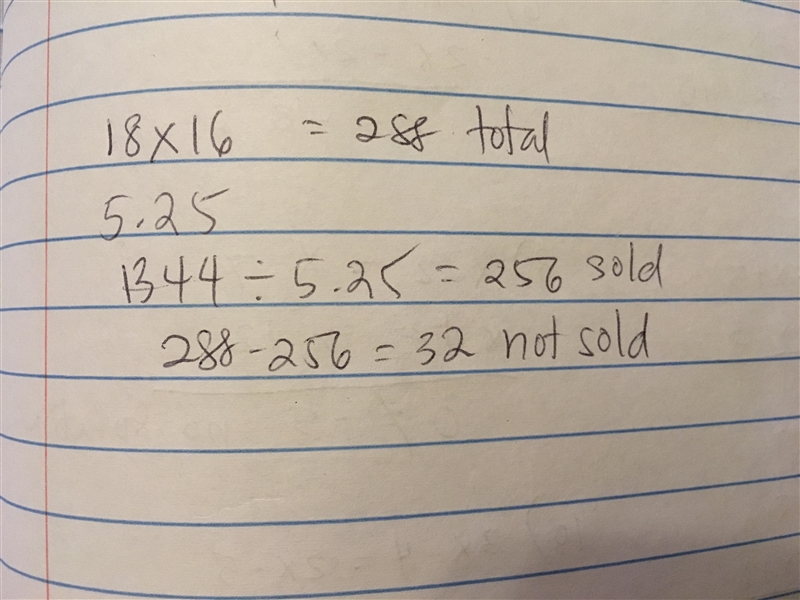 18×16 = 288 total
5.25
1344 ÷ 5.25 = 256 sold
288-256 = 32 not sold